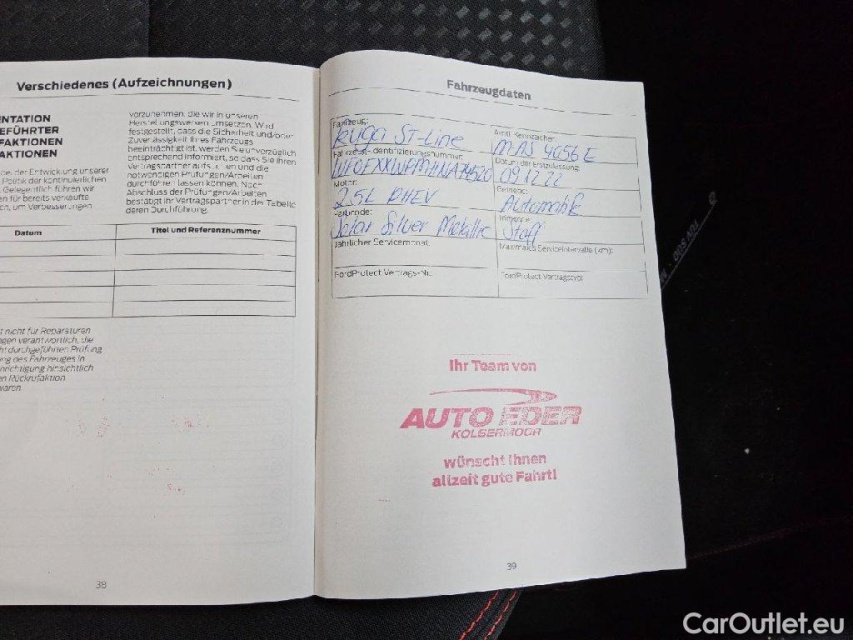 Verschiedenes (Aufzeichnungen)
ENTATION
EFÜHRTER
FAKTIONEN
AKTIONEN
bei der Entwicklung unserer
Politik der kontinuierlichen
Gelegentlich führen wir
en für bereits verkaufte
ch, um Verbesserungen
vorzunehmen, die wir in unseren
Herstellungswerken umsetzen. Wird
festgestellt, dass die Sicherheit und/oder
Zuverlässigkeit Ihres Fahrzeugs
beeinträchtigt ist, werden Sie unverzüglich
entsprechend informiert, so dass Sie Ihren
Vertragspartner aufsuchen und die
notwendigen Prüfungen/Arbeiten
durchführen lassen können. Nach
Abschluss der Prüfungen/Arbeiten
bestätigt Ihr Vertragspartner in der Tabelle
deren Durchführung.
Datum Titel und Referenznummer
t nicht für Reparaturen
gen verantwortlich, die
ht durchgeführten Prüfung
ng des Fahrzeuges in
nrichtigung hinsichtlich
en Rückrufaktion
waren.
38
Fahrzeugdaten
Fahrzeug:
Kuga ST-Line
Amtl. Kennzeichen:
M-AS 4056 E
Fahrzeug-Identifizierungsnummer:
Datum der Erstzulassung:
09.12.22
Motor:
2.5L PHEV
Getriebe:
Automatik
Farbcode:
Solar Silver Metallic
Interieur:
Stoff
Jährlicher Servicemonat:
Maximales Serviceintervall (km):
FordProtect Vertrags-Nr.:
FordProtect Vertragstyp:
Ihr Team von
AUTO EDER
KOLBERMOOR
wünscht Ihnen
allzeit gute Fahrt!
39
CarOutlet.eu